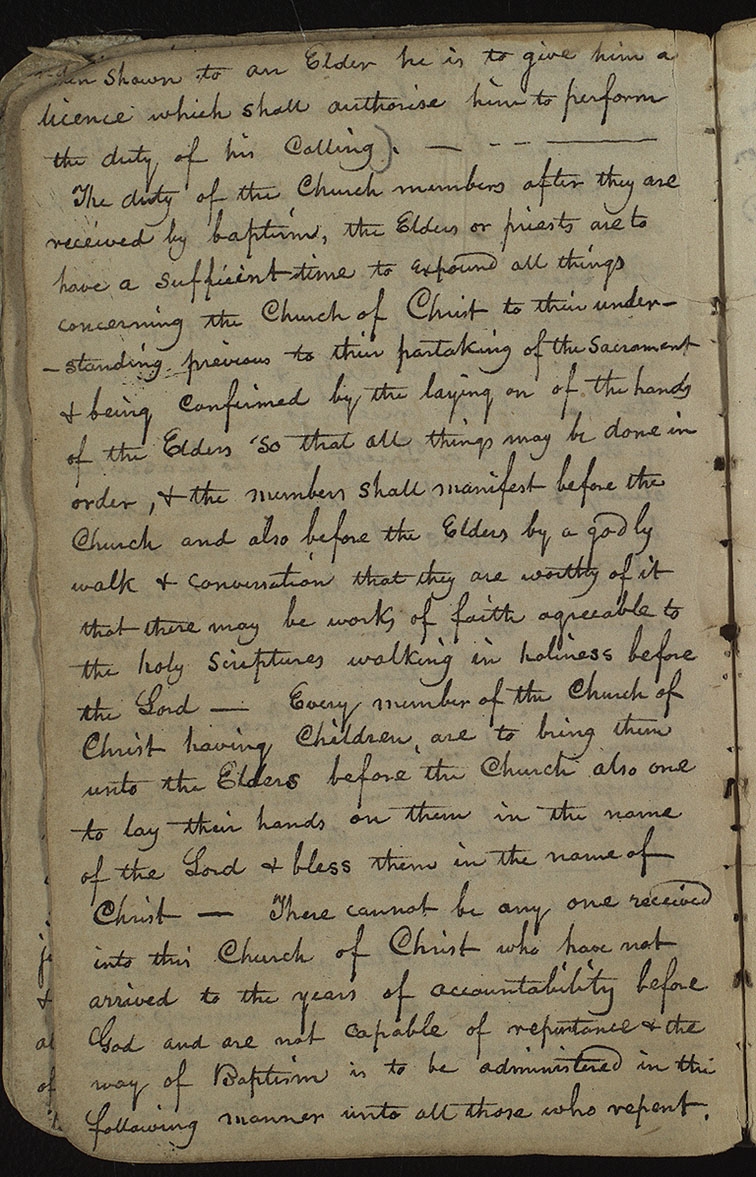 shown to an Elder he is to give him a
licence which shall authorise him to perform
the duty of his Calling). — - - ———
The duty of the Church members after they are
received by baptism, the Elders or priests are to
have a sufficient time to expound all things
concerning the Church of Christ to their under-
-standing previous to their partaking of the Sacrament
& being Confirmed by the laying on of the hands
of the Elders So that all things may be done in
order, & the members shall manifest before the
Church and also before the Elders by a godly
walk & conversation that they are worthy of it
that there may be works of faith agreeable to
the holy Scriptures walking in holiness before
the Lord — Every member of the Church of
Christ having Children, are to bring them
unto the Elders before the Church also one
to lay their hands on them in the name
of the Lord & bless them in the name of
Christ — There cannot be any one received
into this Church of Christ who have not
arrived to the years of accountability before
God and are not capable of repentance & the
way of Baptism is to be administered in the
following manner unto all those who repent.